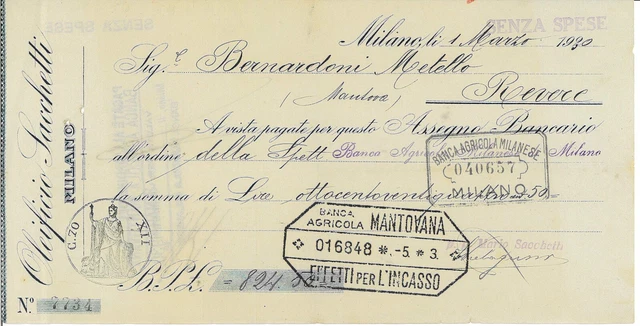 SENZA SPESE
Milano, li 1 Marzo 1930
Sig. r Bernardoni Metello
(Mantova) Revere
A vista pagate per questo Assegno Bancario
all'ordine della Spett Banca Agricola Milanese Milano
la somma di Lire ottocentoventiquattro 50
BANCA AGRICOLA MILANESE
040657
MILANO
BANCA AGRICOLA MANTOVANA
016848 ※ -5 ※ 3
EFFETTI PER L'INCASSO
Mario Sacchetti
B.P.L. = 824.50
Oleificio Sacchetti
MILANO
C.20 XII
N.º 7734